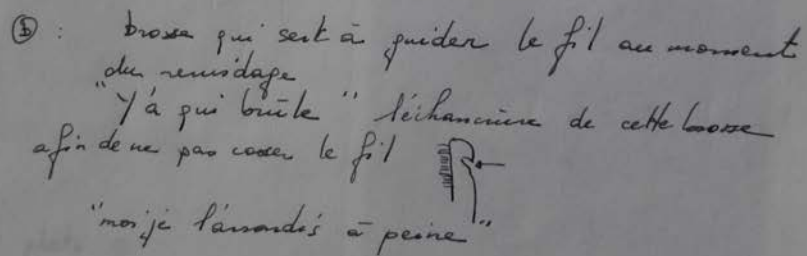 ⑤ : brosse qui sert à guider le fil au moment
du renvidage
"Y'à qui brûle" l'échancrure de cette brosse
afin de ne pas casser le fil
"moi je l'arrondis à peine"